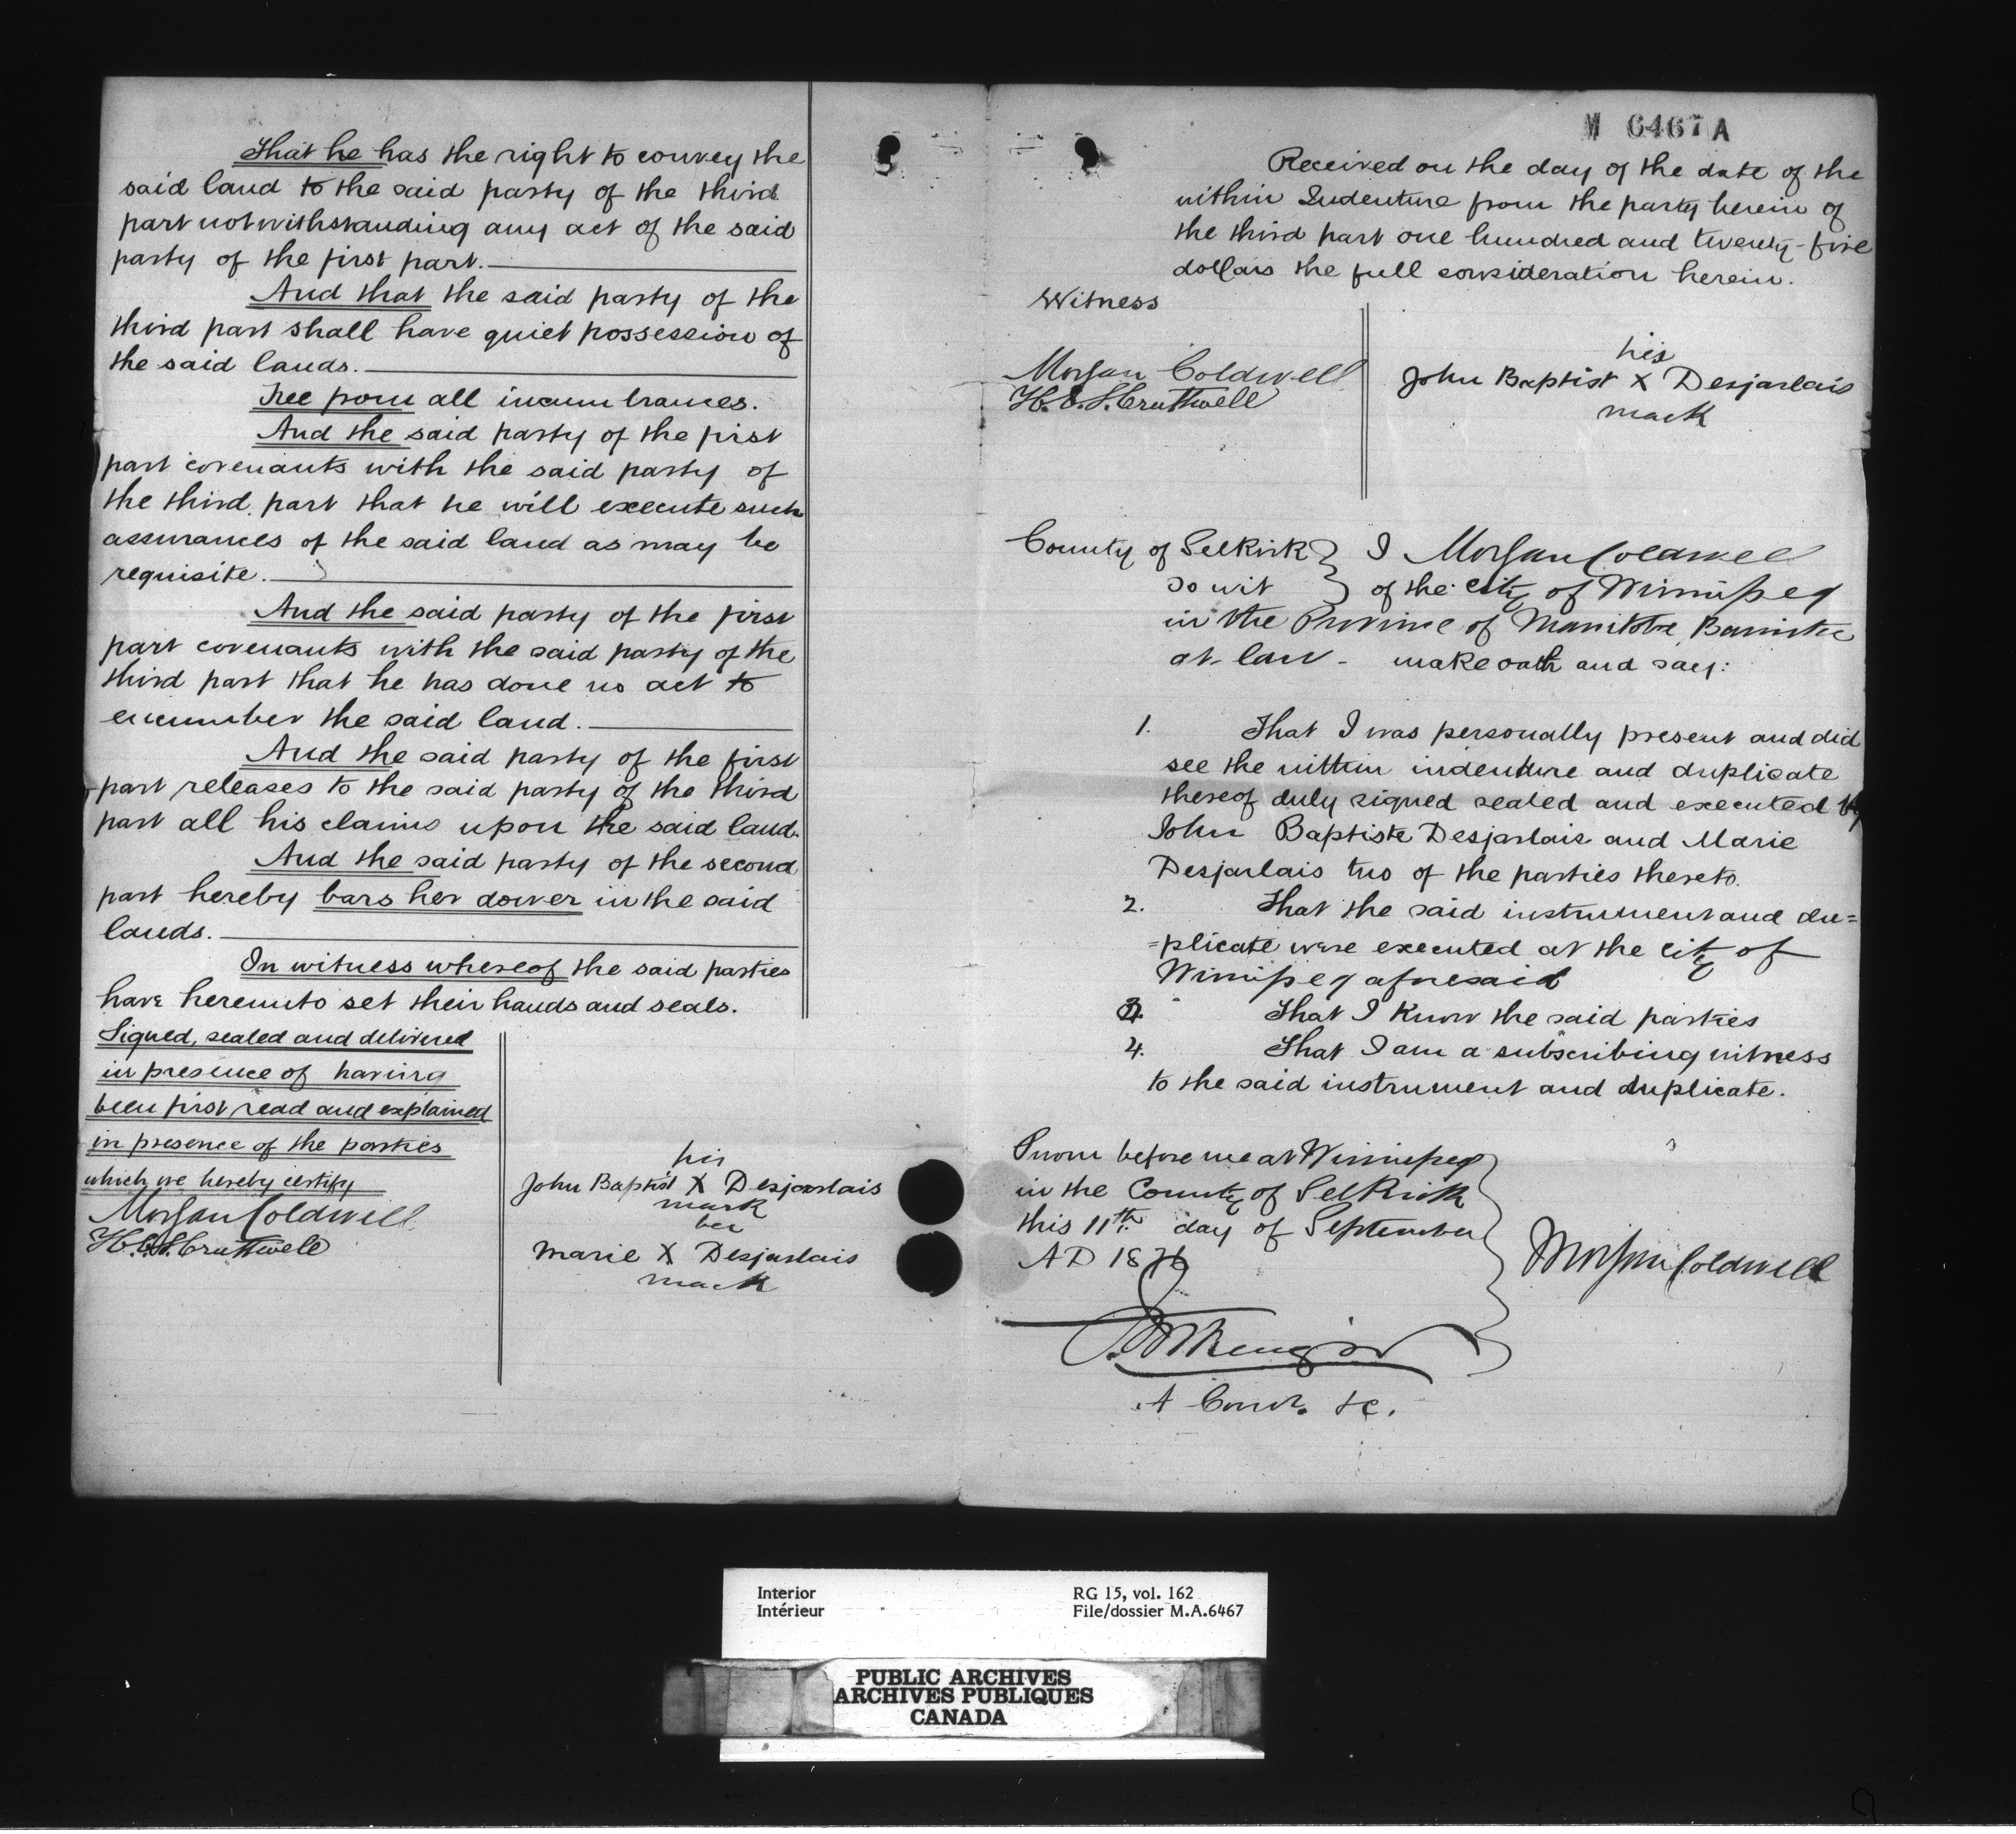 That he has the right to convey the
said land to the said party of the third
part notwithstanding any act of the said
party of the first part.
And that the said party of the
third part shall have quiet possession of
the said lands.
Free from all incumbrances.
And the said party of the first
part covenants with the said party of
the third part that he will execute such
assurances of the said land as may be
requisite.
And the said party of the first
part covenants with the said party of the
third part that he has done no act to
encumber the said land.
And the said party of the first
part releases to the said party of the third
part all his claims upon the said land.
And the said party of the second
part hereby bars her dower in the said
lands.
In witness whereof the said parties
have hereunto set their hands and seals.
Signed, sealed and delivered
in presence of having
been first read and explained
in presence of the parties
which we hereby certify
Morgan Coldwell
H. C. S. Cruttwell
his
John Baptist X Desjarlais
mark
her
Marie X Desjarlais
mark
M 6467 A
Received on the day of the date of the
within Indenture from the party herein of
the third part one hundred and twenty-five
dollars the full consideration herein.
Witness
Morgan Coldwell
H. C. S. Cruttwell
his
John Baptist X Desjarlais
mark
County of Selkirk } I Morgan Coldwell
to wit } of the city of Winnipeg
in the Province of Manitoba Barrister
at-law - make oath and say:
1. That I was personally present and did
see the within indenture and duplicate
thereof duly signed sealed and executed by
John Baptiste Desjarlais and Marie
Desjarlais two of the parties thereto.
2. That the said instrument and du=
=plicate were executed at the city of
Winnipeg aforesaid
3. That I know the said parties
4. That I am a subscribing witness
to the said instrument and duplicate.
Sworn before me at Winnipeg
in the County of Selkirk
this 11th day of September
AD 1876
Morgan Coldwell
A Comr. &c.
Interior
Intérieur
RG 15, vol. 162
File/dossier M.A.6467
PUBLIC ARCHIVES
ARCHIVES PUBLIQUES
CANADA